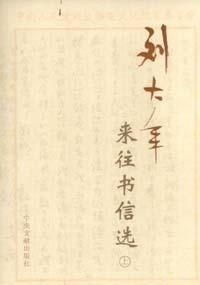 刘大年
来往书信选
上
中央文献出版社